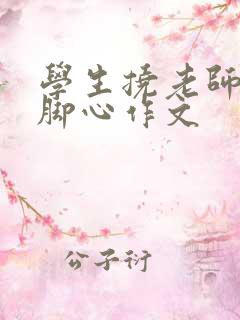 學生撓老師
腳心作文
公子衍